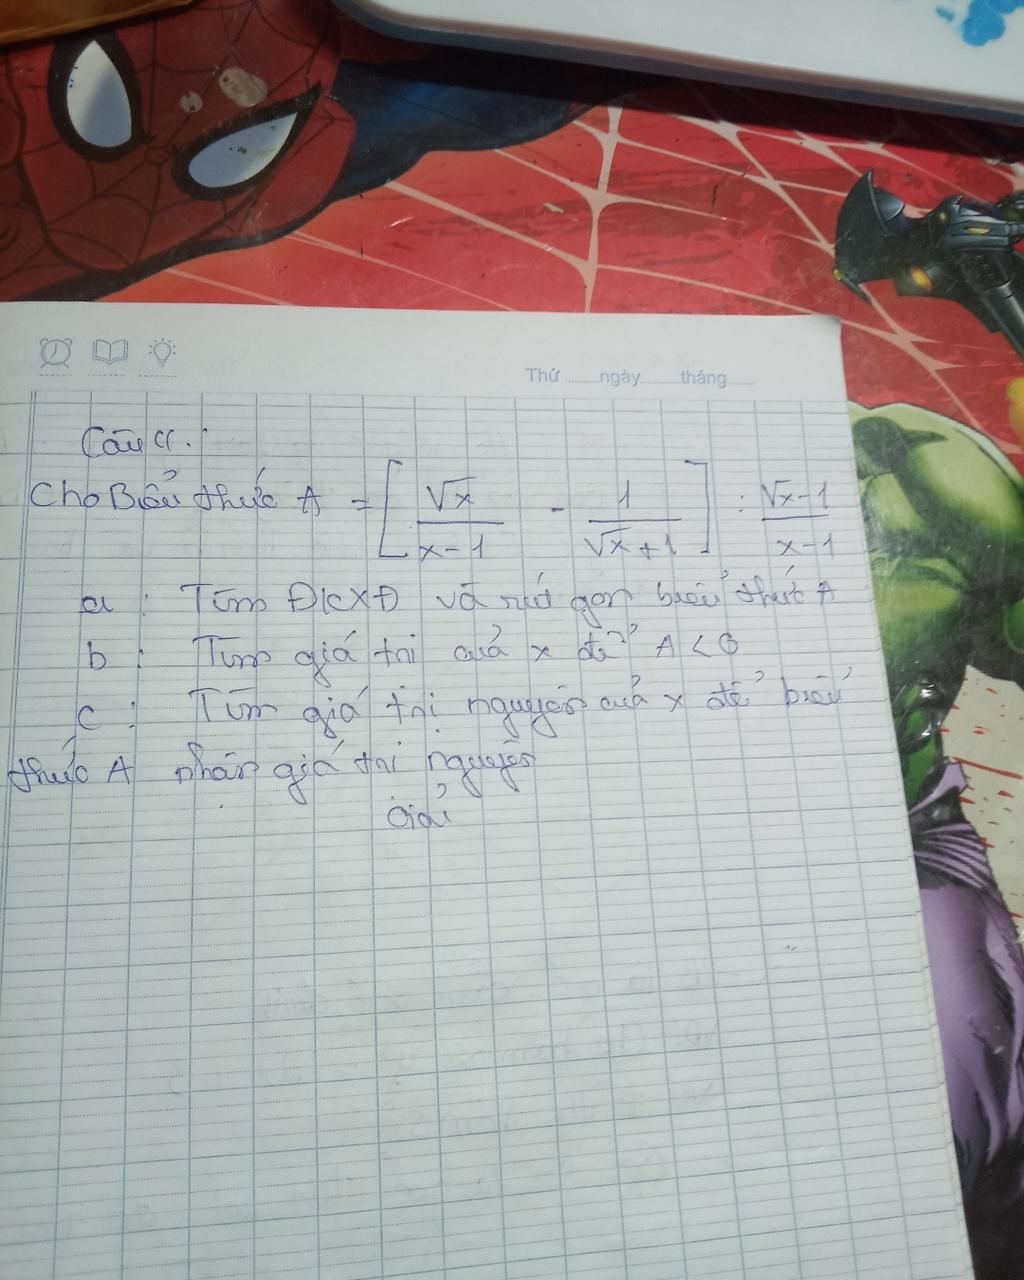 Thứ ngày tháng
Câu 4.
Cho Biểu thức A = [√x/(x-1) - 1/(√x+1)] : (√x-1)/(x-1)
a : Tìm ĐKXĐ và rút gọn biểu thức A
b : Tìm giá trị của x để A < 0
c : Tìm giá trị nguyên của x để biểu
thức A nhận giá trị nguyên
Giải